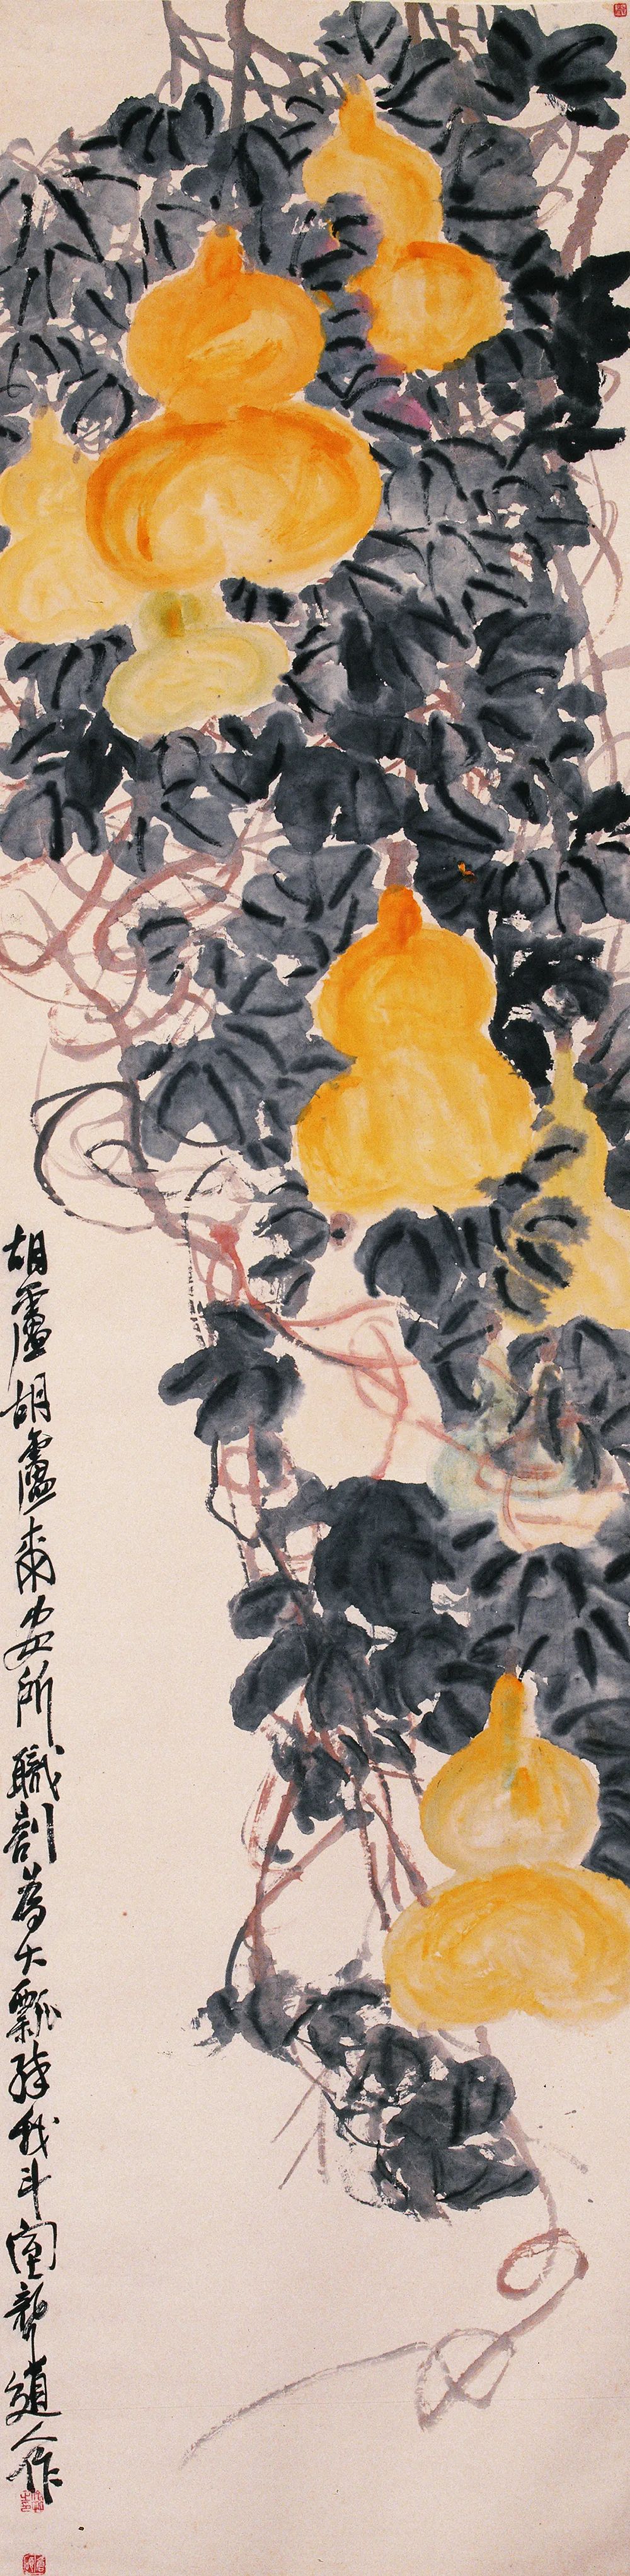 胡盧胡盧爾安所職剖為大瓢殍我斗室聾道人作